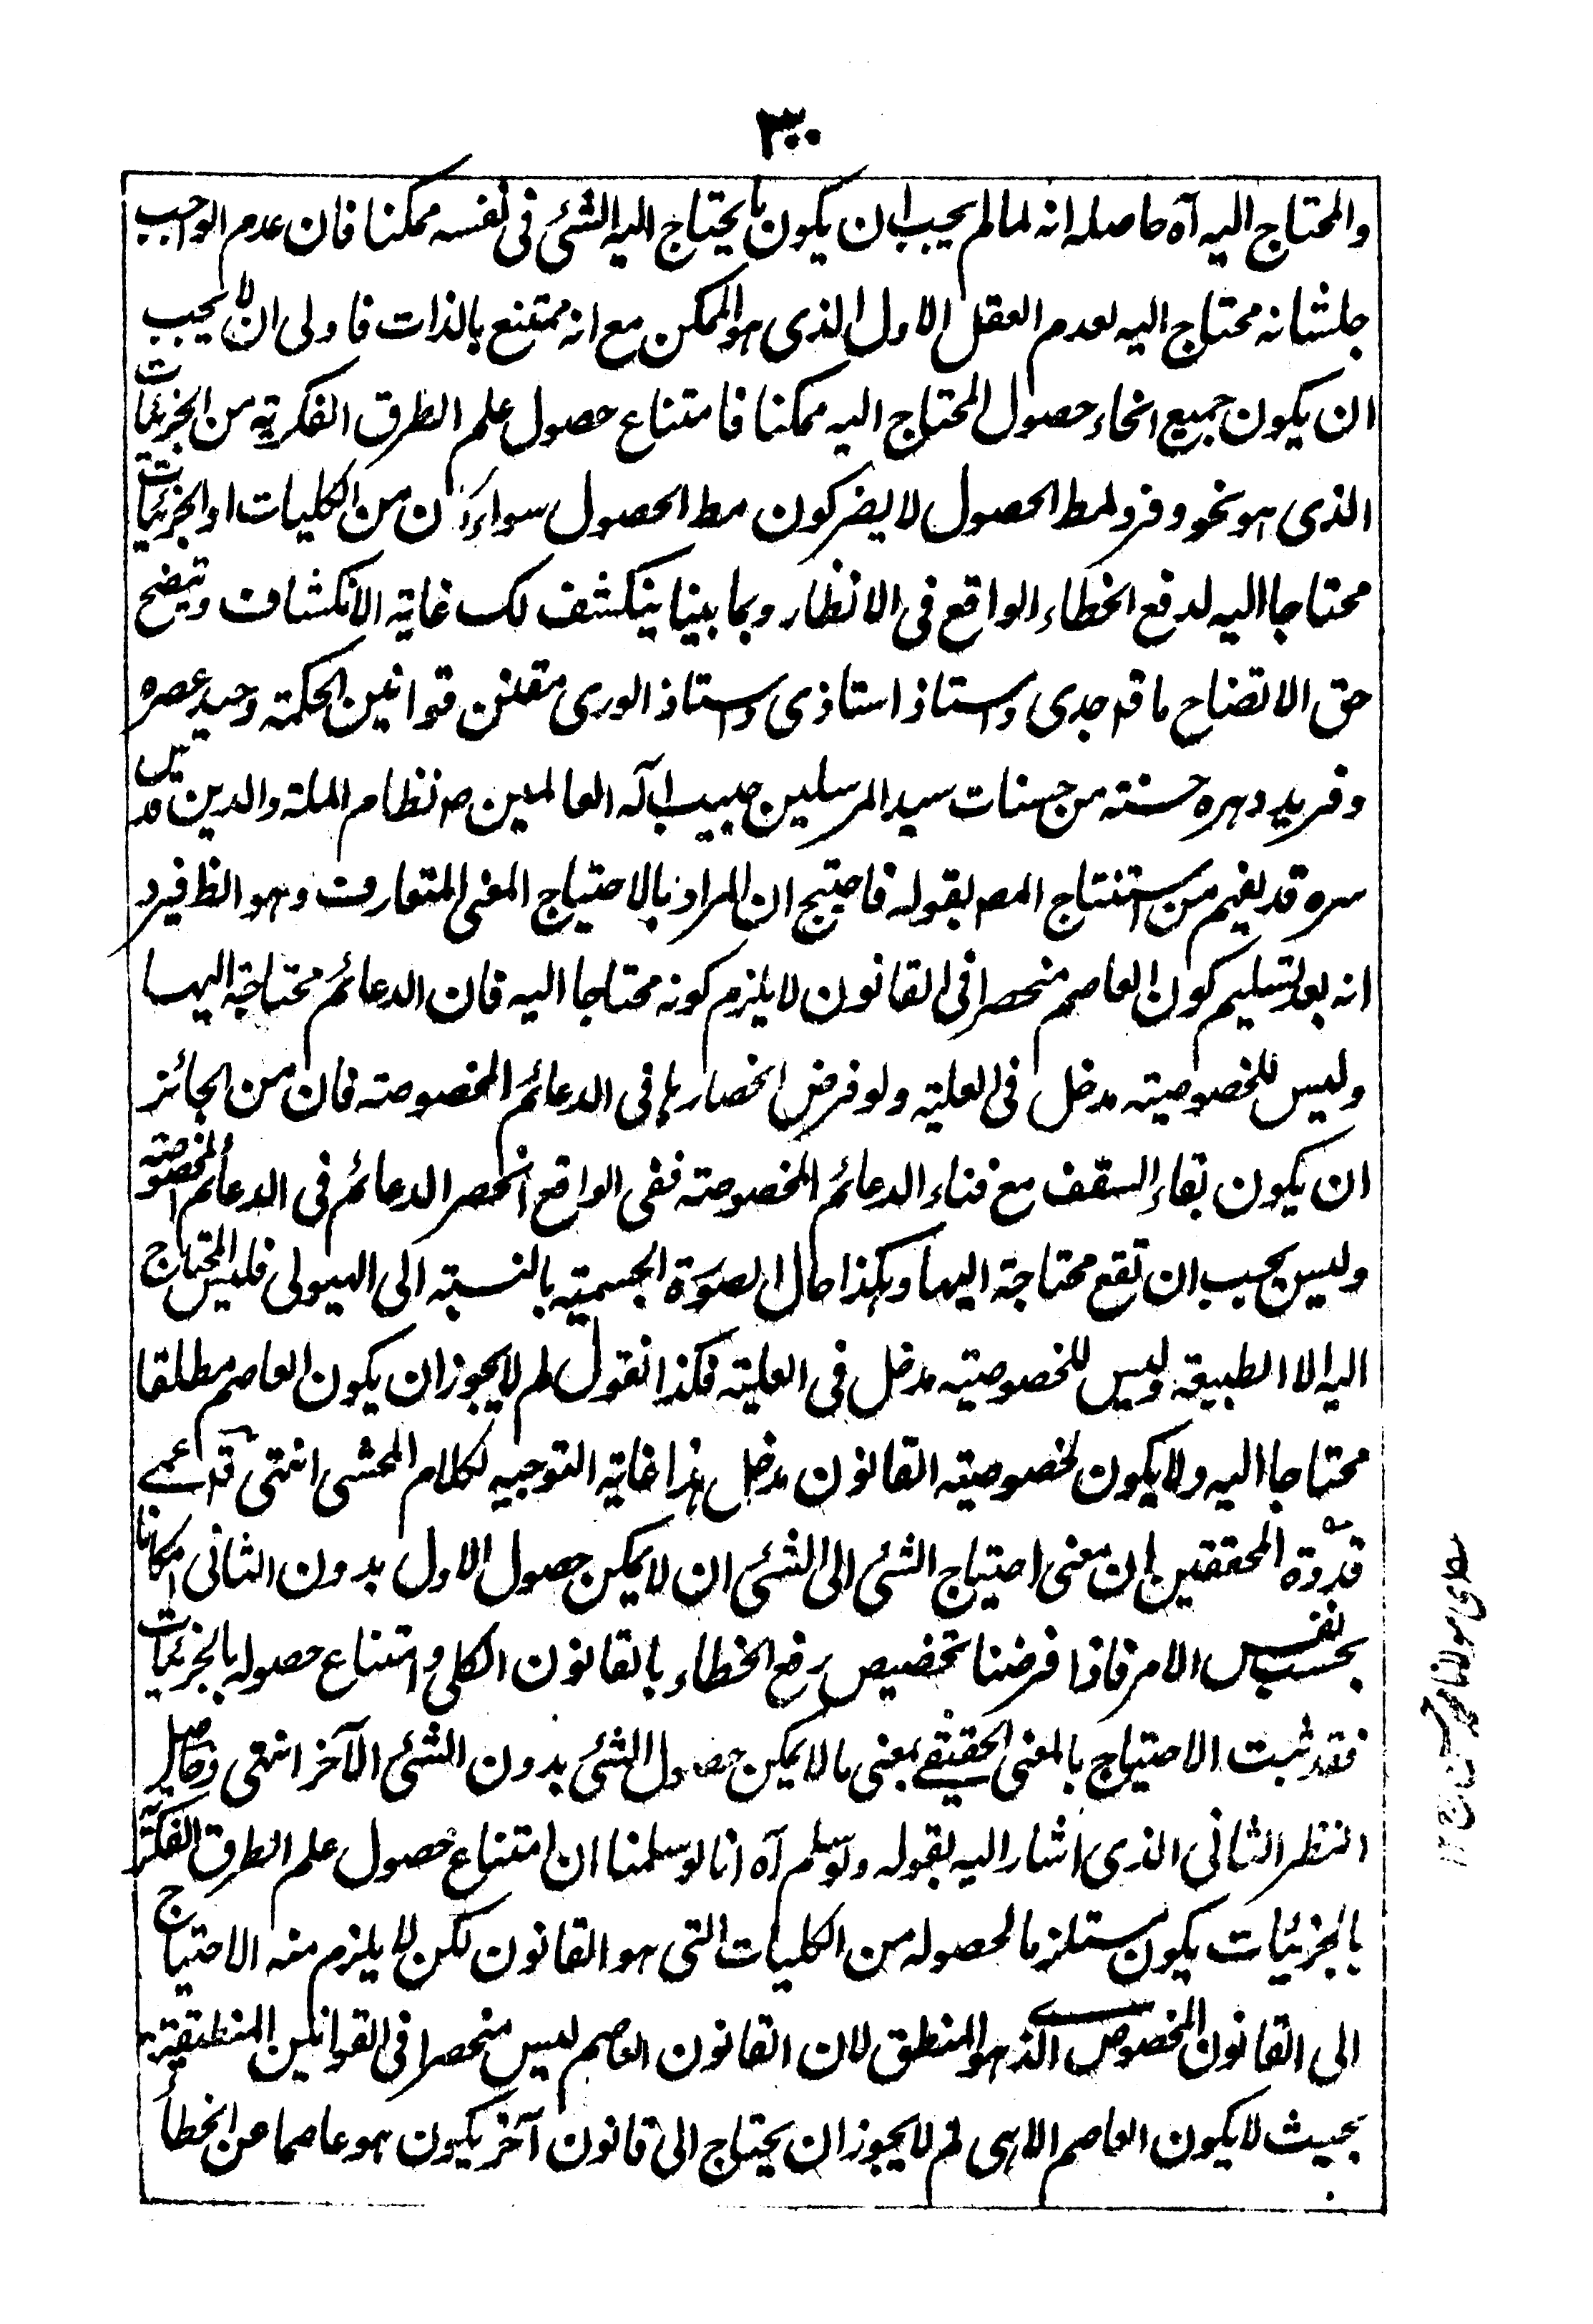 ٣٠
والمحتاج اليه آه حاصله انه لما لم يجب ان يكون ما يحتاج اليه الشئ فى نفسه ممكنا فان عدم الواجب
جلشانه محتاج اليه لعدم العقل الاول الذى هو الممكن مع انه ممتنع بالذات فاولى ان لا يجب
ان يكون جميع انحاء حصول المحتاج اليه ممكنا فامتناع حصول علم الطرق الفكرية من الجزئيات
الذى هو نحو وفرد لمط الحصول لا يضر كون مط الحصول سواء كان من الكليات او الجزئيات
محتاجا اليه لدفع الخطاء الواقع فى الانظار وبما بينا ينكشف لك غاية الانكشاف ويتضح
حق الاتضاح ما قه جدى واستاذ استاذى واستاذ الورى مقنن قوانين الحكمة وحيد عصره
وفريد دهره حسنة من حسنات سيد المرسلين حبيب آله العالمين صم نظام الملة والدين قدس
سره قد يفهم من استنتاج المصم بقوله فاحتيج ان المراد بالاحتياج المعنى المتعارف وهو الظ فيرد
انه بعد تسليم كون العاصم منحصرا فى القانون لا يلزم كونه محتاجا اليه فان الدعائم محتاجة اليها
وليس للخصوصية مدخل فى العلية ولو فرض انحصارها فى الدعائم المخصوصة فان من الجائز
ان يكون بقاء السقف مع فناء الدعائم المخصوصة ففى الواقع انحصر الدعائم فى الدعائم المخصوصة
وليس يجب ان تقع محتاجة اليها وهكذا حال الصورة الجسمية بالنسبة الى الهيولى فليس المحتاج
اليه الا الطبيعة وليس للخصوصية مدخل فى العلية فكذا نقول لم لا يجوز ان يكون العاصم مطلقا
محتاجا اليه ولا يكون لخصوصية القانون مدخل هذا غاية التوجيه لكلام المحشى انتهى قه عمى
قدوة المحققين ان معنى احتياج الشئ الى الشئ ان لا يمكن حصول الاول بدون الثانى امكانا
بحسب نفس الامر فاذا فرضنا تخصيص رفع الخطاء بالقانون الكلى وامتناع حصوله بالجزئيات
فقد ثبت الاحتياج بالمعنى الحقيقى بمعنى ما لا يمكن حصول الشئ بدون الشئ الآخر انتهى وحاصل
النظر الثانى الذى اشار اليه بقوله ولو سلم آه انا لو سلمنا ان امتناع حصول علم الطرق الفكرية
بالجزئيات يكون مستلزما لحصوله من الكليات التى هو القانون لكن لا يلزم منه الاحتياج
الى القانون المخصوص الذى هو المنطق لان القانون العاصم ليس منحصرا فى القوانين المنطقية
بحيث لا يكون العاصم الا هى لم لا يجوز ان يحتاج الى قانون آخر يكون هو عاصما عن الخطأ
مولانا محمد حسن ١٢